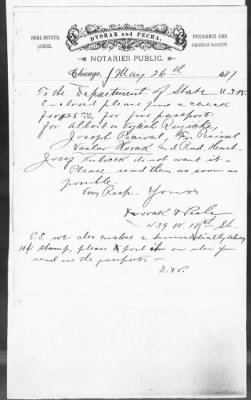 REAL ESTATE,
LOANS.
DVORAK and PECHA,
INSURANCE AND
PASSAGE AGENTS.
NOTARIES PUBLIC.
Chicago, May 26th 1891
To the Department of State U.S.A.
Enclosed please find a check
for 25 for five passports
for Albert
Joseph
Vaclav Novak and Rud.
Josef Kubicek do not want it -
Please send them as soon as
possible
Very Resp. Yours
Dvorak & Pecha
439 W. 18th St.
P.S. we also enclose a special delivery
10¢ stamp, please put it on when you
send us the passports -
D. & P.